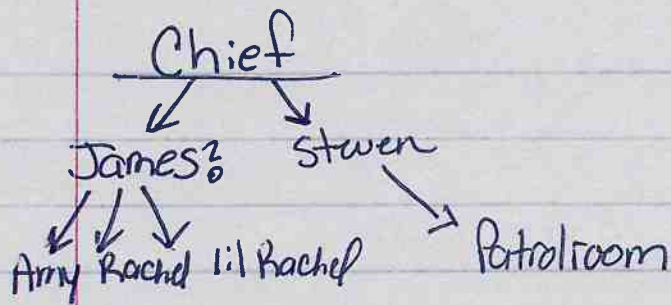 Chief
James? Steven
Amy Rachel lil Rachel Patrolroom